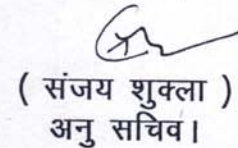 ( संजय शुक्ला )
अनु सचिव।